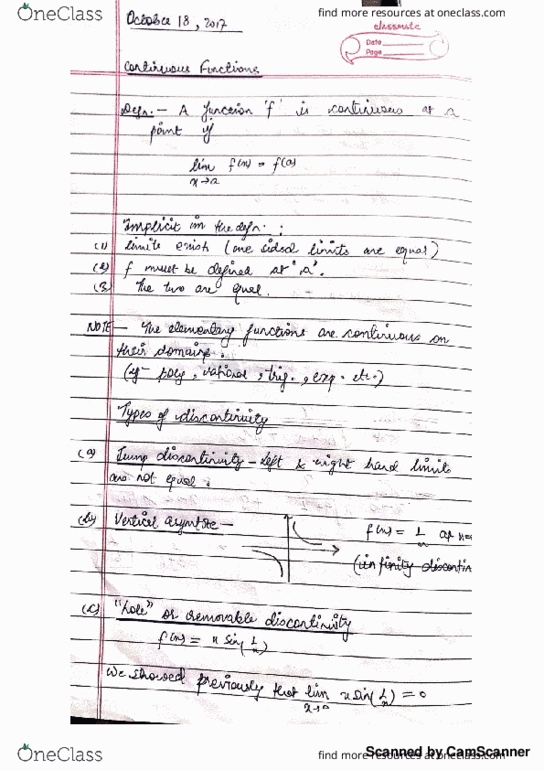 OneClass
find more resources at oneclass.com
October 18, 2017
classmate
Date
Page
Continuous Functions
Defn.:- A function 'f' is continuous at a
point if
lim f(x) = f(a)
x→a
Implicit in the defn. :
(1) limits exist (one sided limits are equal)
(2) f must be defined at 'a'.
(3) The two are equal.
NOTE- The elementary functions are continuous on
their domains.
(eg- poly, rational, trig., exp. etc.)
Types of discontinuity
(a) Jump discontinuity - left & right hand limits
are not equal.
(b) Vertical asymtote -
f(x) = 1/x at x=
(infinity discontin
(c) "hole" or removable discontinuity
f(x) = x sin(1/x)
We showed previously that lim x sin(1/x) = 0
x→0
OneClass
find more resources at oneclass.com
Scanned by CamScanner